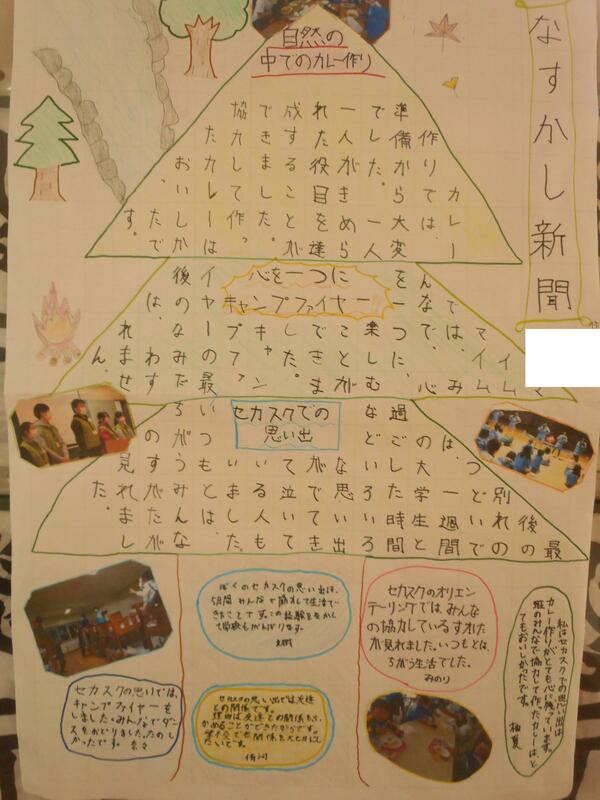 なすかし新聞
自然の
中でのカレー作り
カレー
作りでは、
準備から大変
でした。一人
一人がきめら
れた役目を達
成することが
できました。
協力して作っ
たカレーは
おいしか
たで
す。
心を一つに
キャンプファイヤー
マイム
マイム
では、み
んなで、心
を一つに、
楽しむ
ことが
できま
した。
キャン
プファ
イヤーの最
後のなみだ
は、わす
れませ
ん。
セカスクでの
思い出
最
後の
別れの
つどいで
は、一週間
の大学生と
過ごした時間
などいろいろ
な思い出
ができ
て泣いて
いる人も
いました。
いつもとは、
ちがうみんな
のすがたが
見れまし
た。
私はセカスクでの思い出は
カレー作りがとても心に残っています。
班のみんなで協力して作ったカレーはと
てもおいしかったです。
セカスクのオリエン
テーリングでは、みんな
の協力しているすがた
が見れました。いつもとは、
ちがう生活でした。
みのり
ぼくのセカスクの思い出は、
5日間みんなで協力して生活で
きたことです。この経験を生かし
て学校もがんばります。
セカスクの思い出では友達
との関係です。
理由は友達との関係もふ
かめることができたからです。
学校でも関係を大切にし
たいです。
セカスクの思いでは、
キャンプファイヤーを
しました。みんなでダン
スをおどりました。たのし
かったです。